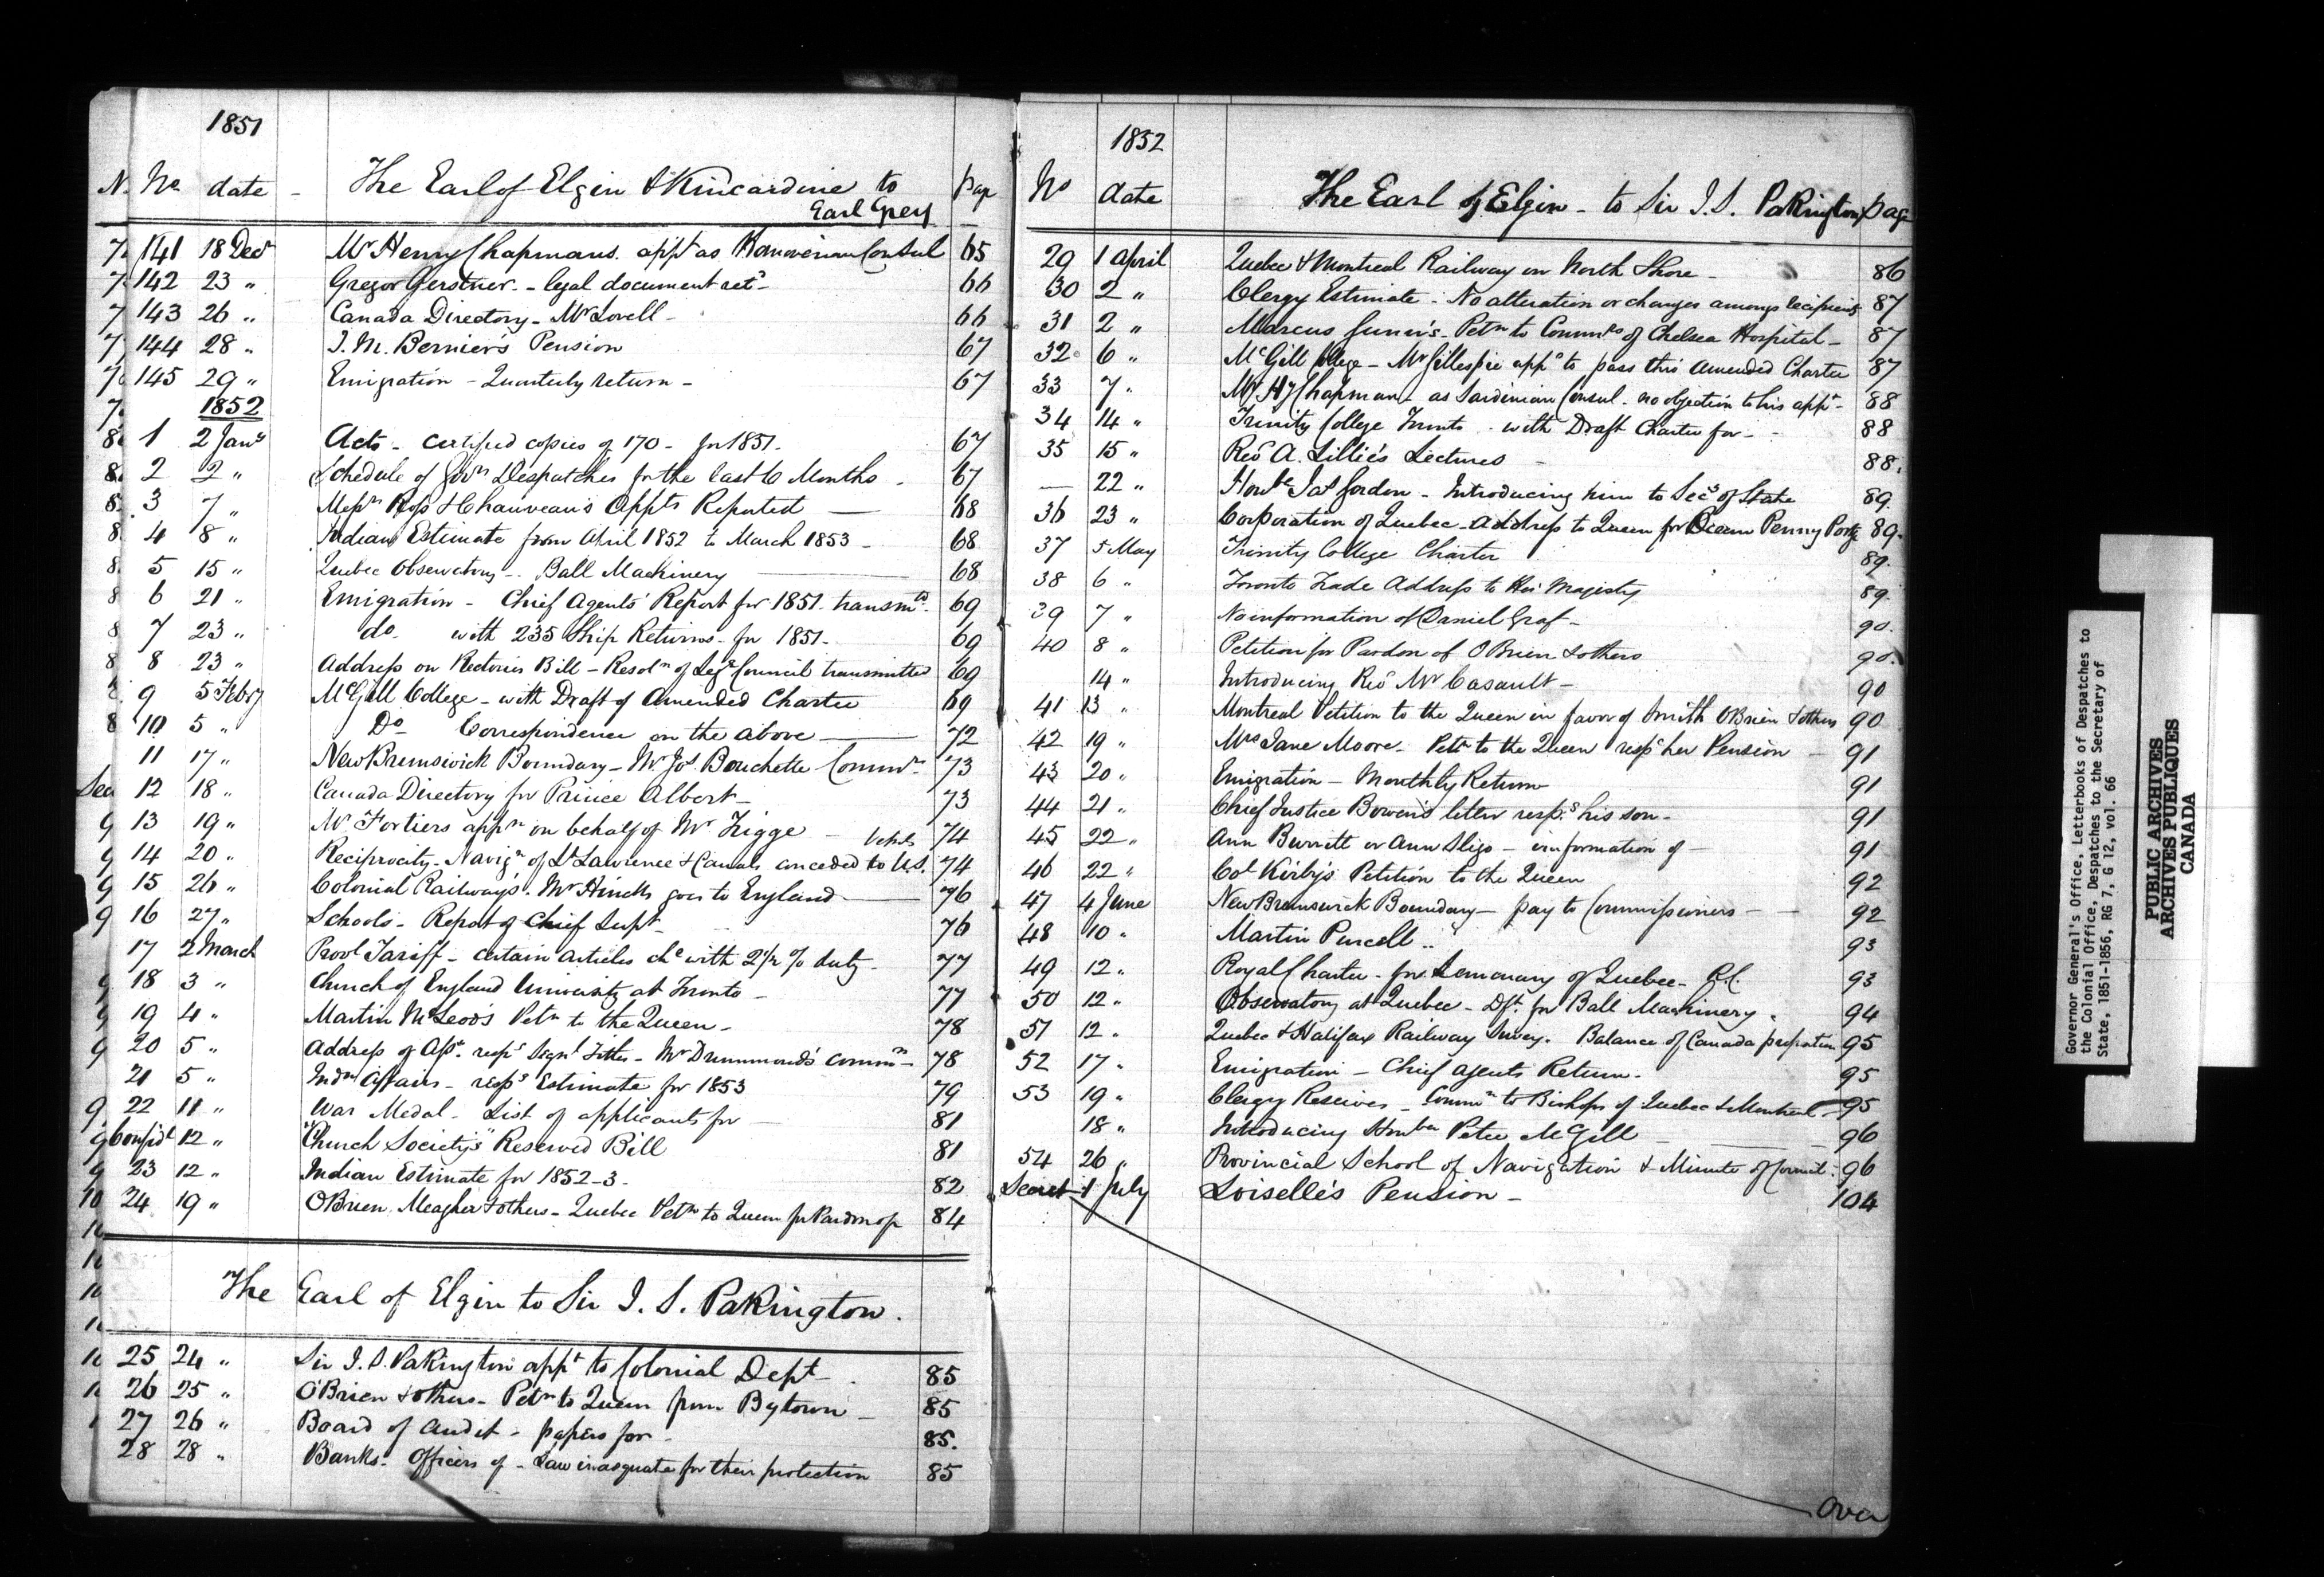 1851
No. date - The Earl of Elgin & Kincardine to Page
Earl Grey
141 18 Decr Mr Henry Chapmans appt as Hanoverian Consul 65
142 23 " Gregor Gerstner - legal document retd 66
143 26 " Canada Directory - Mr Lovell - 66
144 28 " J. M. Bernier's Pension 67
145 29 " Emigration - Quarterly return - 67
1852
1 2 Jany Acts - certified copies of 170 - for 1851 - 67
2 2 " Schedule of Govrs Despatches for the last 6 Months - 67
3 7 " Messrs Ross & Chauveau's Appts Reported — 68
4 8 " Indian Estimate from April 1852 to March 1853 - 68
5 15 " Quebec Observatory - Ball Machinery — 68
6 21 " Emigration - Chief Agents' Report for 1851 transmtd - 69
7 23 " do. with 235 Ship Returns - for 1851 - 69
8 23 " Address on Rectories Bill - Resoln of Legve Council transmitted 69
9 5 Feby McGill College - with Draft of Amended Charter 69
10 5 " Do Correspondence on the above — 72
11 17 " New Brunswick Boundary - Mr Jos. Bouchette Commr - 73
12 18 " Canada Directory for Prince Albert - 73
13 19 " Mr Fortiers appn on behalf of Mr Trigge - 74
Vessels
14 20 " Reciprocity - Navign of St Lawrence & Canals conceded to U.S. 74
15 26 " Colonial Railways. Mr Hincks goes to England — 76
16 27 " Schools - Report of Chief Supt - 76
17 2 March Provl Tariff - certain articles chd with 2 1/2 % duty - 77
18 3 " Church of England University at Toronto - 77
19 4 " Martin McLeod's Petn to the Queen - 78
20 5 " Address of Assy. respg Seignl Titles - Mr Drummond's commn - 78
21 5 " Indn Affairs - respg Estimate for 1853 79
22 11 " War Medal - List of applicants for - 81
Confidl 12 " "Church Society's" Reserved Bill 81
23 12 " Indian Estimate for 1852-3 - 82
24 19 " O'Brien, Meagher & others - Quebec Petn to Queen for Pardon of 84
The Earl of Elgin to Sir J. S. Pakington.
25 24 " Sir J. S. Pakington appt to Colonial Dept - 85
26 25 " O'Brien & others - Petn to Queen from Bytown - 85
27 26 " Board of Audit - papers for - 85.
28 28 " Banks - Officers of - Law inadequate for their protection 85
1852
No date The Earl of Elgin - to Sir J. S. Pakington page
29 1 April Quebec & Montreal Railway on North Shore - 86
30 2 " Clergy Estimate - No alteration or changes amongs recipients 87
31 2 " Marcus - Petn to Commrs of Chelsea Hospital - 87
32 6 " McGill College - Mr Gillespie appd to pass this amended Charter 87
33 7 " Mr Hy Chapman - as Sardinian Consul - no objection to his appt - 88
34 14 " Trinity College Toronto - with Draft Charter for - 88
35 15 " Revd A. Lillie's Lectures - 88.
— 22 " Honble Jas Gordon - Introducing him to Secy of State 89.
36 23 " Corporation of Quebec - Address to Queen for Ocean Penny Postge 89.
37 5 May Trinity College Charter 89.
38 6 " Toronto Trade Address to Her Majesty 89.
39 7 " No information of Daniel Graf - 90.
40 8 " Petition for Pardon of O'Brien & others 90.
14 " Introducing Revd Mr Casault - 90
41 13 " Montreal Petition to the Queen in favor of Smith O'Brien & others 90
42 19 " Mrs Jane Moore - Petn to the Queen respg her Pension - 91
43 20 " Emigration - Monthly Return 91
44 21 " Chief Justice Bowen's letter respg his son - 91
45 22 " Ann Burnitt or Ann Sligo - information of - 91
46 22 " Col Kirby's Petition to the Queen 92
47 4 June New Brunswick Boundary - pay to Commissioners - 92
48 10 " Martin Purcell .. 93
49 12 " Royal Charter - for Semenary of Quebec - R.C. 93
50 12 " Observatory at Quebec - Dft. for Ball Machinery. 94
51 12 " Quebec & Halifax Railway Survey. Balance of Canada proportion 95
52 17 " Emigration - Chief Agents Return. 95
53 19 " Clergy Reserves - Commn to Bishops of Quebec & Montreal - 95
18 " Introducing Honble Peter McGill - 96
54 26 " Provincial School of Navigation & Minute of Council: 96
Secret 1 July Loiselle's Pension - 104
Over
Governor General's Office, Letterbooks of Despatches to
the Colonial Office, Despatches to the Secretary of
State, 1851-1856, RG 7, G 12, vol. 66
PUBLIC ARCHIVES
ARCHIVES PUBLIQUES
CANADA